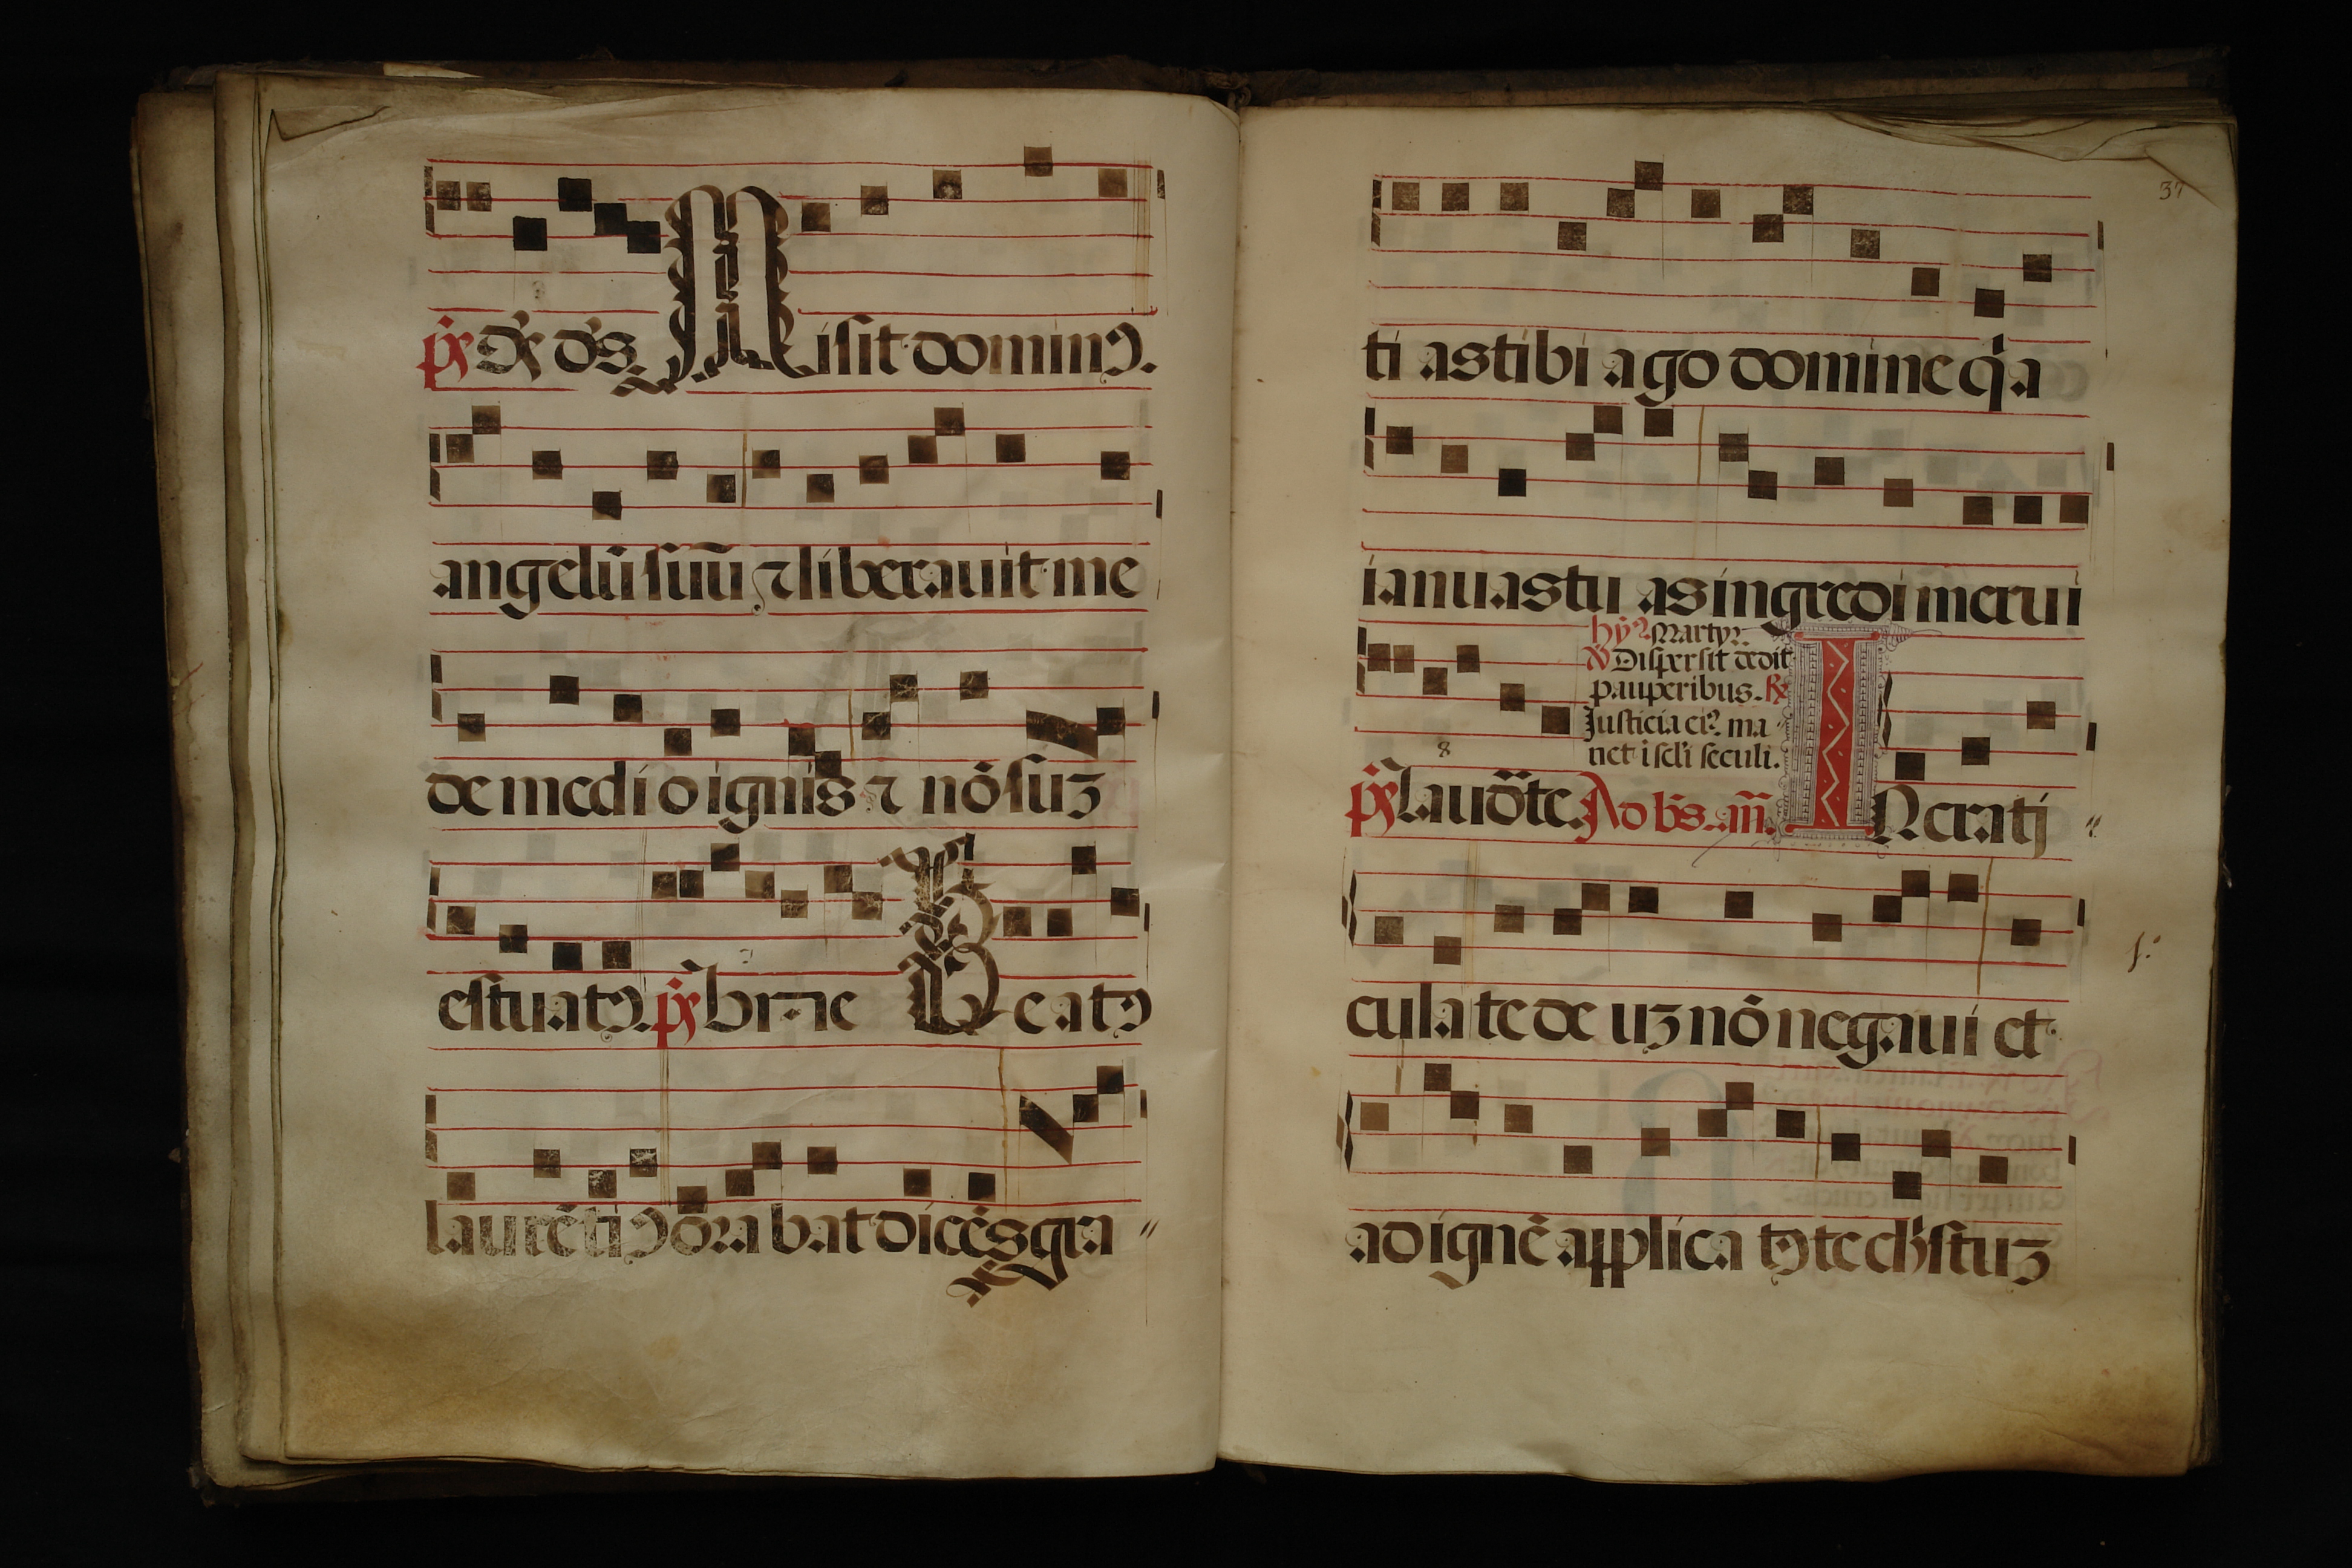 ps. Ds ds. Misit dominꝰ.
angelū suū ⁊ liberauit me
de medio ignis ⁊ nō suꝫ
estuatꝰ. ps. bn̄ne Beatꝰ
laurētiꝰ ora bat dicēs gra
37
ti as tibi ago domine q̇a
ianuas tu as ingredi merui
hyꝰ. Martyꝝ.
℣ Dispersit dedit
pauperibus. ℟
Justicia eiꝰ ma
net i scl̄i seculi.
8
ps. Laudāte. Ad bs̄. an̄. IN crati
cula te de uꝫ nō negaui et
ad ignē applica tꝰ te chr̄istuꝫ